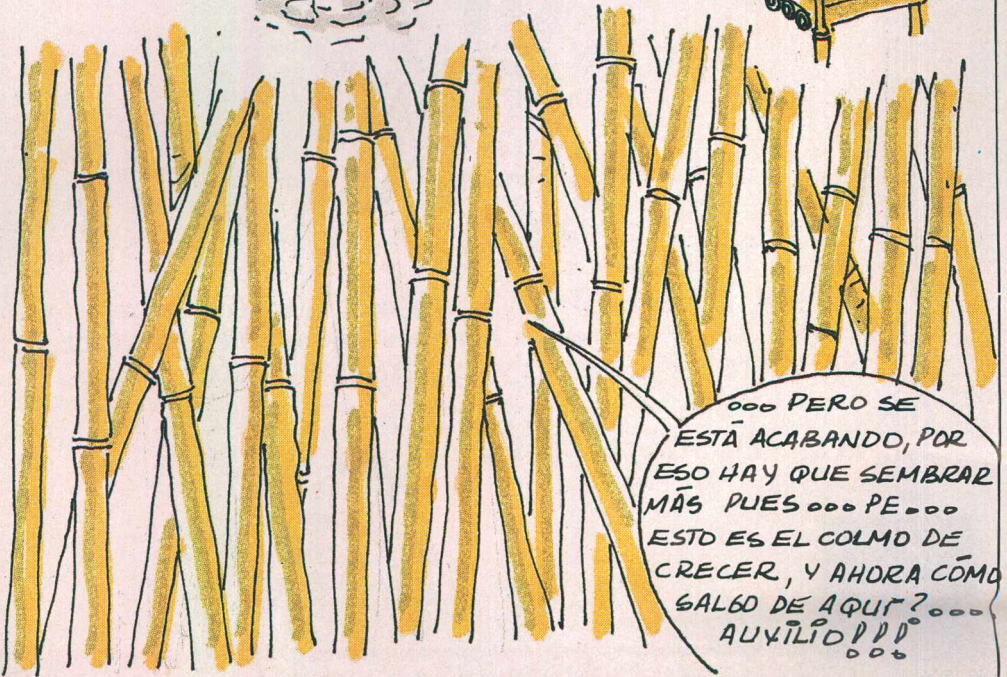 ... PERO SE
ESTÁ ACABANDO, POR
ESO HAY QUE SEMBRAR
MÁS PUES ... PE ...
ESTO ES EL COLMO DE
CRECER, Y AHORA CÓMO
SALGO DE AQUÍ? ...
AUXILIO!!!